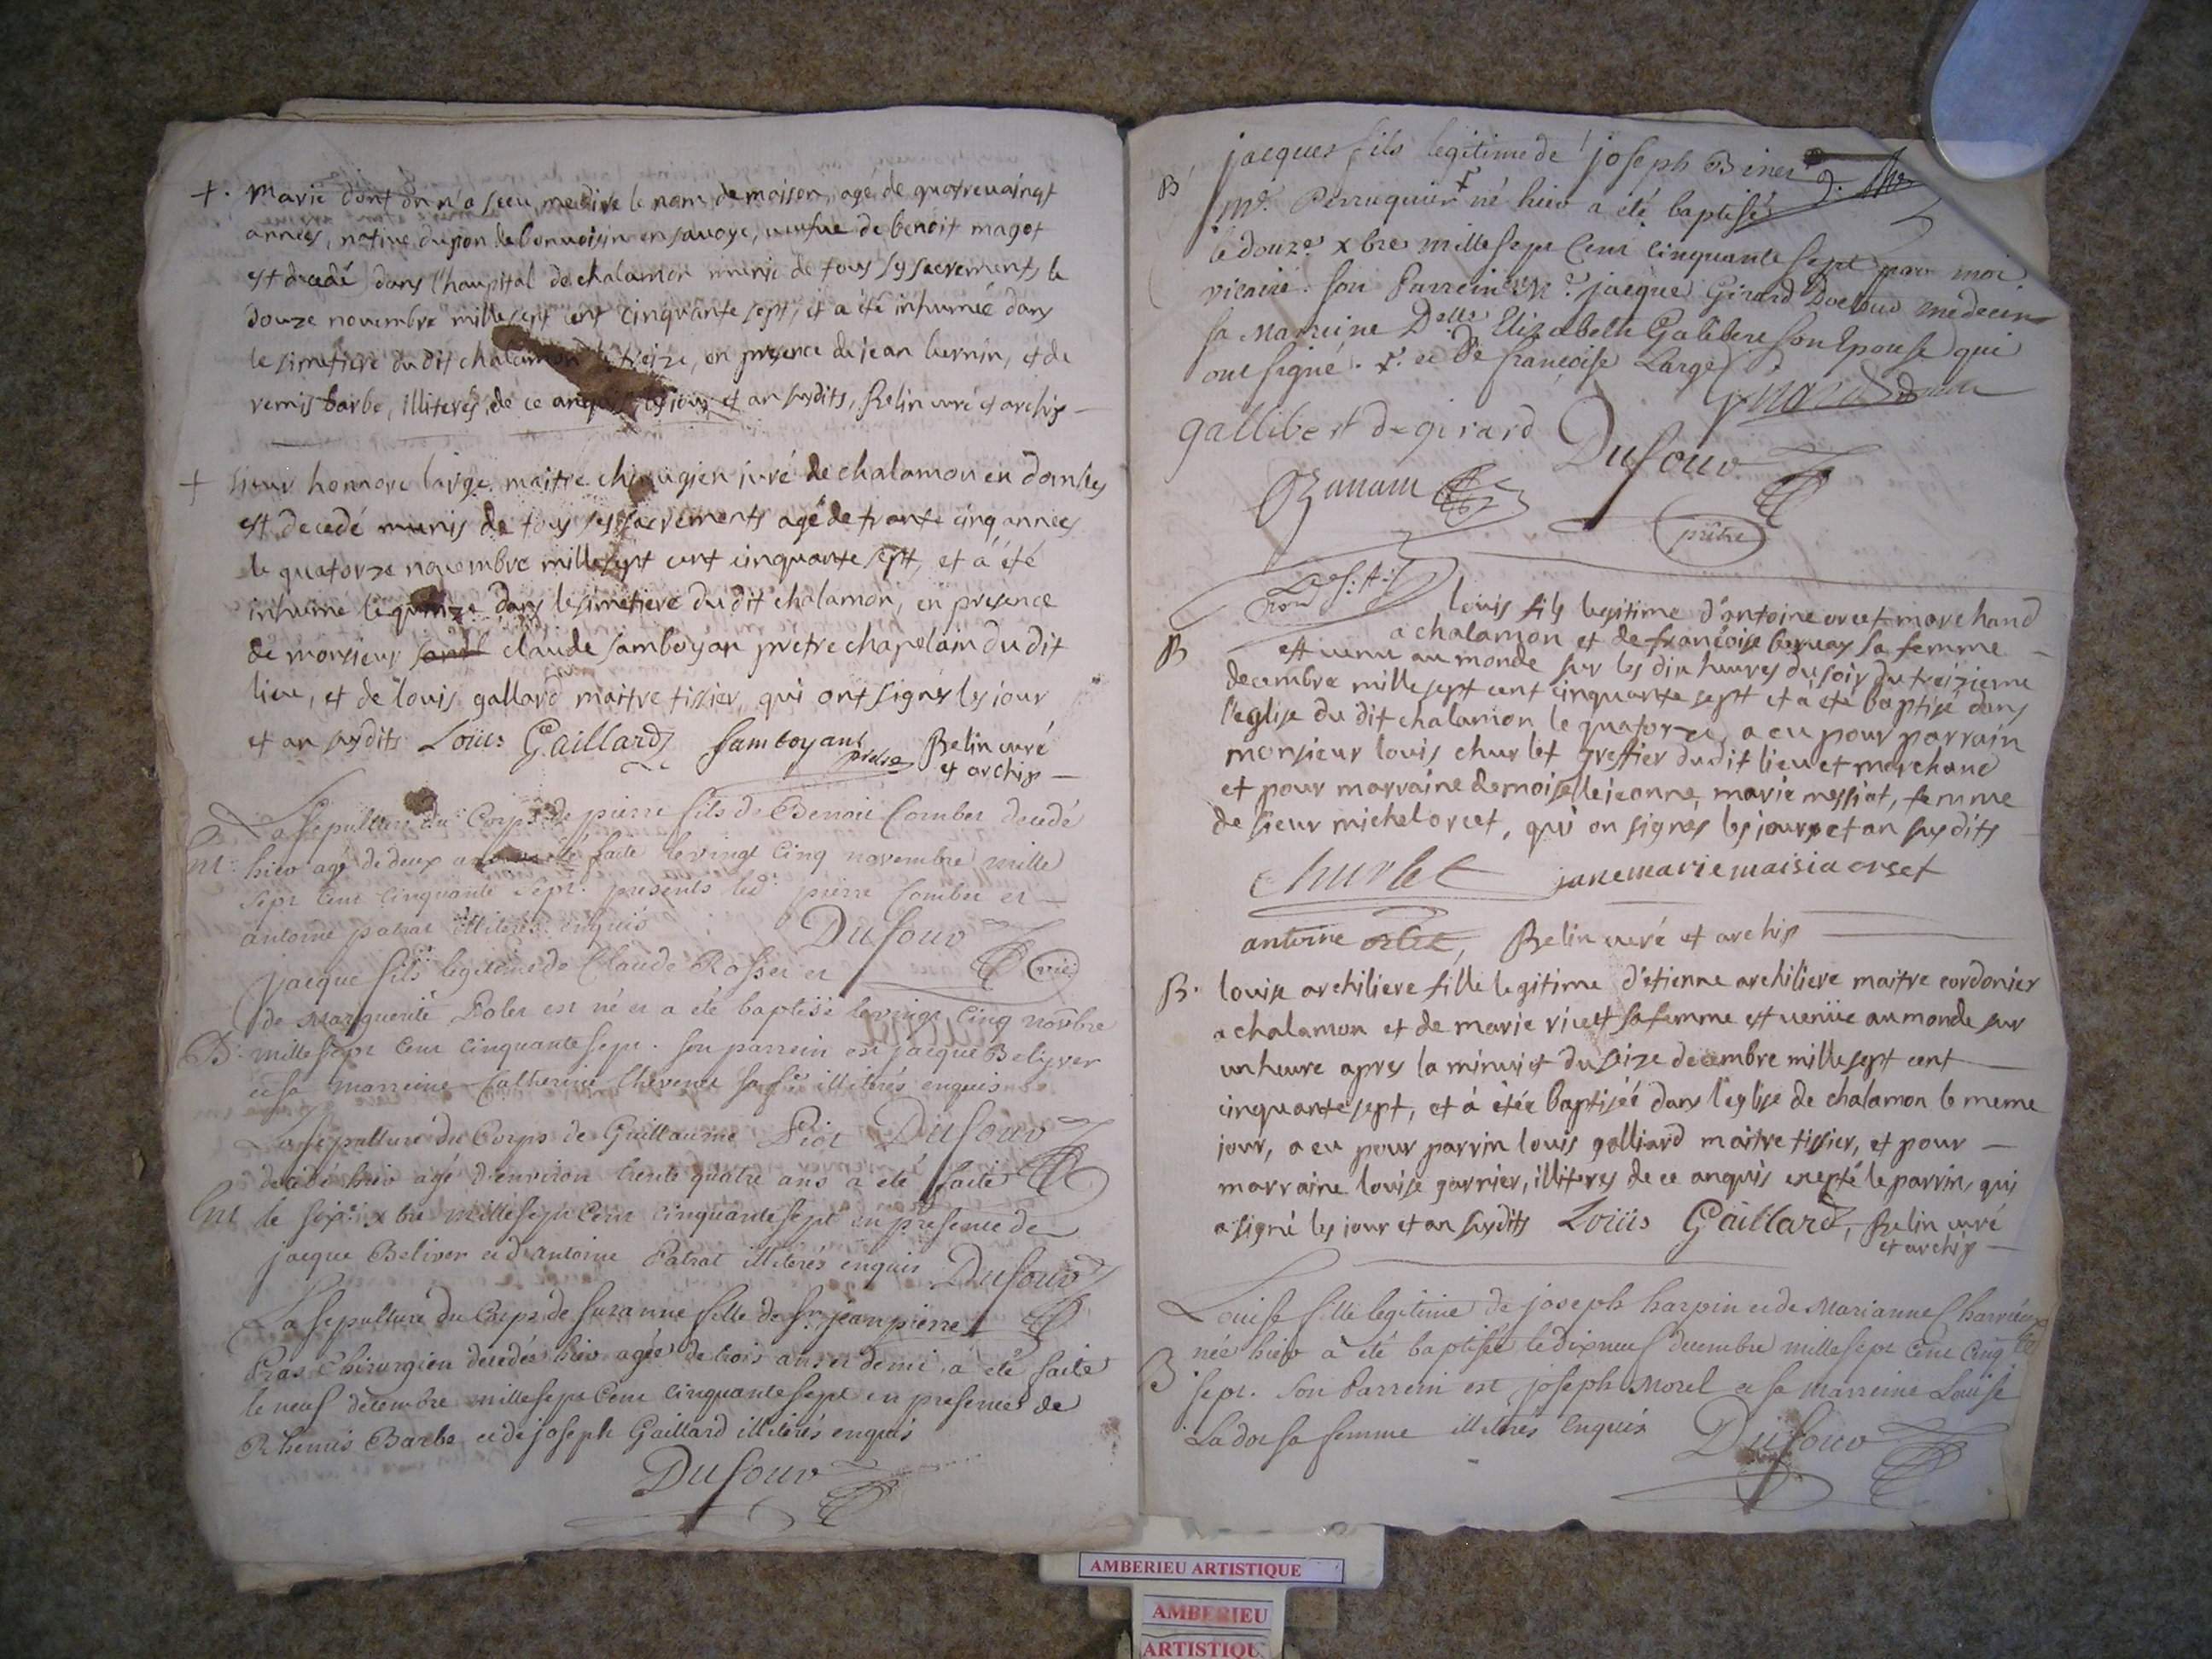 +. Marie dont on n'a sceu me dire le nom de maison, agé de quatrevaingt
années, native du pon de bonvoisin en savoye, veufve de benoit magot
est decedé dans l'haupital de chalamon munie de tous sys sacrements le
douze novembre mille sept cent cinquante sept, et a été inhumée dans
le simetiere du dit chalamon le treize, en presence de jean bernin, et de
remis barbe, illiterés de ce anquis, les jour et an susdits, Belin curé et archip
+ sieur honnore large maitre chirugien juré de chalamon en dombes
est decedé munis de tous ses sacrements agé de trante cinq années
le quatorze novembre mille sept cent cinquante sept, et a été
inhumé le quinze dans le simetiere du dit chalamon, en presence
de monsieur claude samboyan prêtre chapelain du dit
lieu, et de louis gallard maitre tissier, qui ont signés les jour
et an susdits Loüis Gaillard Samboyant prêtre Belin curé
et archip
La sepulture du Corps de pierre fils de Benoit Comber decedé
Ent. hier agé de deux ans a été faite le vingt cinq novembre mille
sept cent cinquante sept. presents led. pierre Comber et
antoine patrat illiterés enquis Dufour
vic
jacque fils legitime de Claude Rosset et
de Marguerite Poler est né et a été baptisé le vingt cinq novbre
B. mille sept cent cinquante sept. son parrein est jacque Beliver
et sa marreine Catherine Chevenet sa fe illiterés enquis
La sepulture du Corps de Guillaume Piot Dufour
decedé hier agé d'environ trente quatre ans a été faite
Ent le sixe. xbre mille sept cent cinquante sept en presence de
jacque Beliver et d'antoine Patrat illiterés enquis Dufour
La sepulture du Corps de suzanne fille de sr. jean pierre
Pras Chirurgien decedée hier agée de trois ans et demi a été faite
le neuf decembre mille sept cent cinquante sept en presence de
Rhemis Barbe et de joseph Gaillard illiterés enquis
Dufour
jacques fils legitime de joseph Binet
B me. Perruquier né hier a été baptisé
le douze. xbre mille sept Cent cinquante sept par moi
vicaire. son Parrein Mr. jacque Girard Docteur medecin
sa Marreine Delle Elizabeth Galibert son Epouse qui
ont signé. et de françoise Large
Girard
gallibert de girard Dufour
Ozanam
prêtre
louis fils legitime d'antoine orcet marchand
a chalamon et de françoise bernay sa femme
B est venu au monde sur les dix heures du soir du treizieme
decembre mille sept cent cinquante sept et a été baptisé dans
l'eglise du dit chalamon le quatorze, a eu pour parrain
monsieur louis churlet greffier du dit lieu et marchand
et pour marraine demoiselle jeanne marie messiat, femme
de sieur michel orcet, qui on signés les jours et an susdits
Churlet jane marie maisia orset
antoine orset, Belin curé et archip
B. louise archiliere fille legitime d'étienne archiliere maitre cordonier
a chalamon et de marie vicet sa femme est venüe au monde sur
un heure apres la minuit du seize decembre mille sept cent
cinquante sept, et a étée baptisée dans l'eglise de chalamon le meme
jour, a eu pour parrin louis galliard maitre tissier, et pour
marraine louise garnier, illiteres de ce anquis exepté le parrin, qui
a signé les jour et an susdits Loüis Gaillard, Belin curé
et archip
Louise fille legitime de joseph harpin et de Marianne Charvieux
née hier à été baptisée le dixneuf decembre mille sept Cent Cinqte
B sept. Son Parrein est joseph Morel et sa marreine Louise
Lador sa femme illiterés Enquis Dufour
AMBERIEU ARTISTIQUE
AMBERIEU
ARTISTIQU